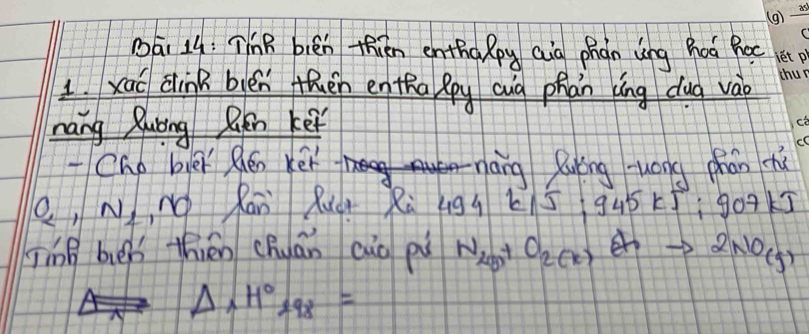 (g)
Bài 14: Tính biến thiên enthalpy của phản ứng hoá học
1. xác định biến thiên enthalpy của phản ứng dựa vào
năng lượng liên kết
- Cho biết liên kết năng lượng trong phân tử
O₂, N₂, NO lần lượt là 494 kJ; 945 kJ; 907 kJ
Tính biến thiên chuẩn của pứ N₂(g) + O₂(k) → 2NO(g)
Δ H⁰ 298 =